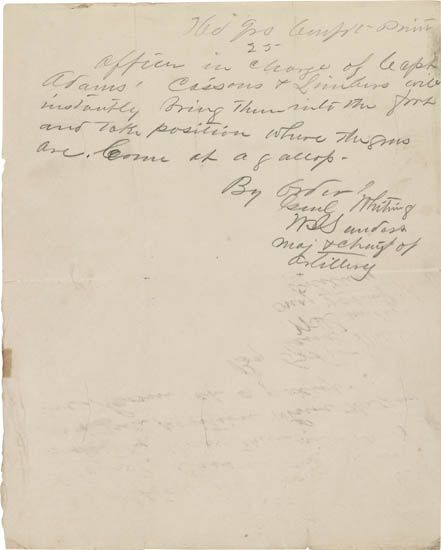 Hd Qrs Confdt Point
25
Officer in charge of Capt
Adams' Cassons & Limbers will
instantly bring them into the fort
and take position where the guns
are. Come at a gallop.
By Order of
Genl Whiting
W Saunders
Maj & Chief of
Artillery